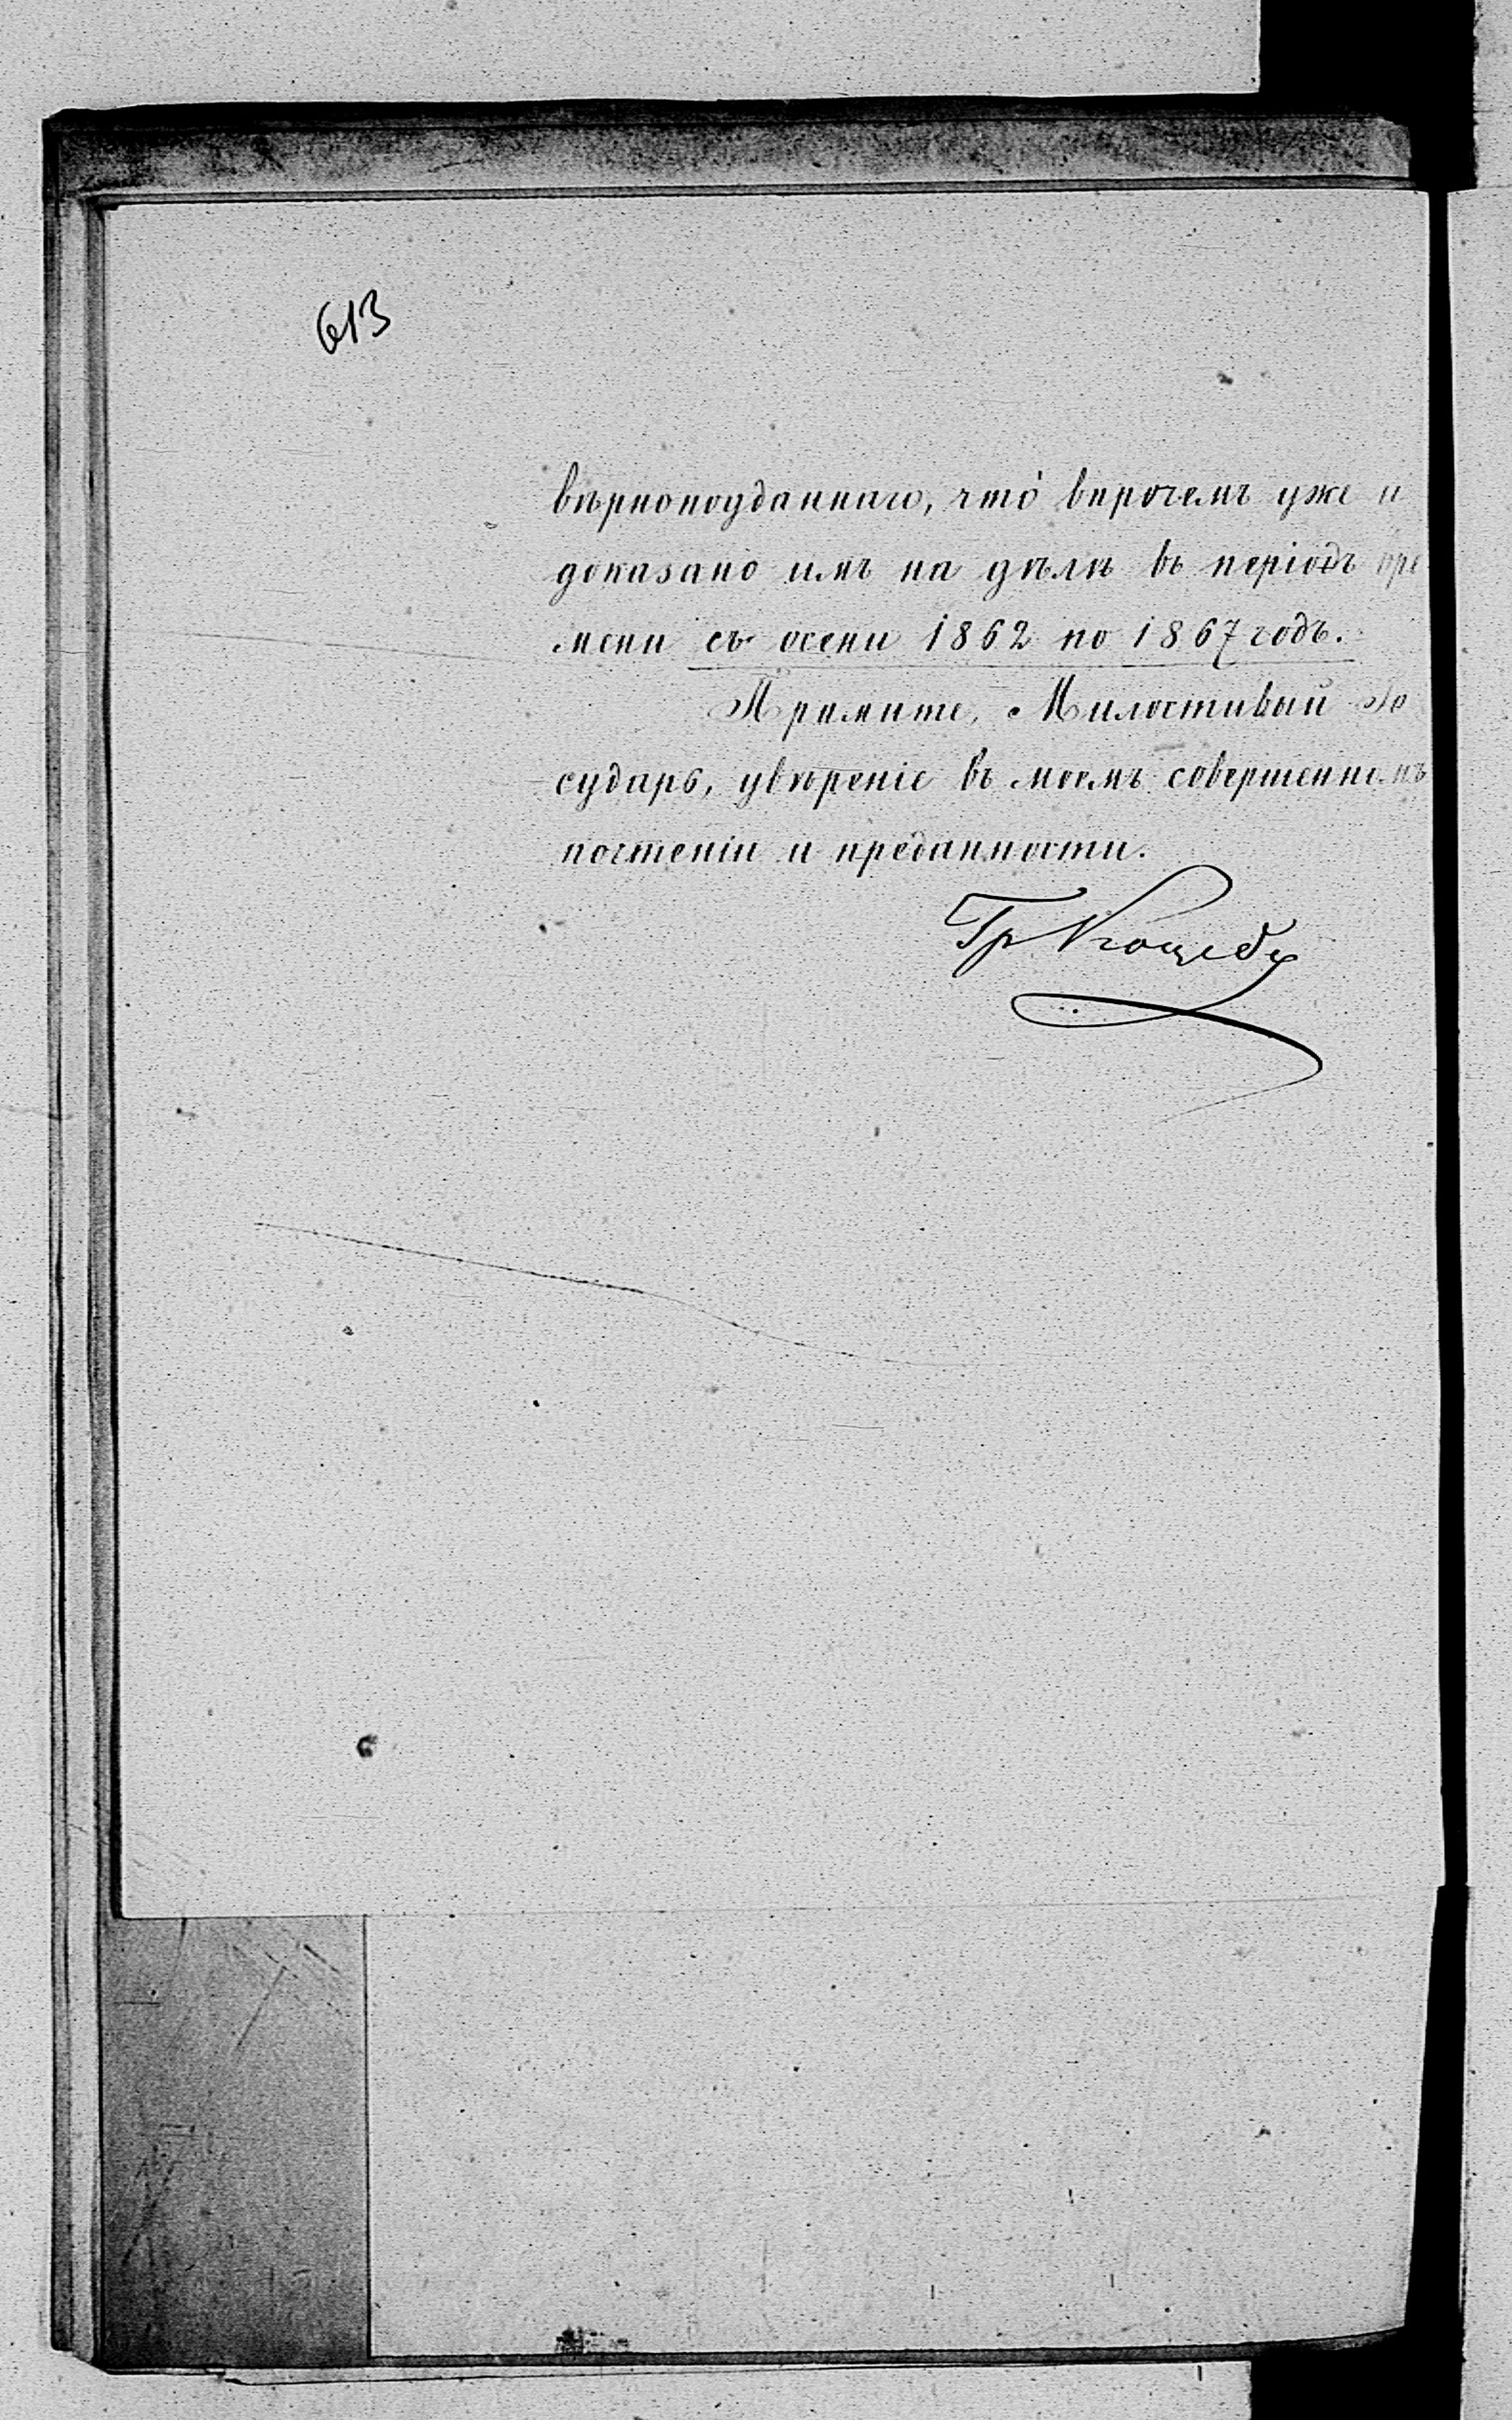 613
вѣрноподданнаго, что́ впрочемъ уже и
доказано имъ на дѣлѣ въ періодъ вре
мени съ осени 1862 по 1867 годъ.
Примите, Милостивый Го
сударь, увѣреніе въ моемъ совершенномъ
почтеніи и преданности.
Гр Коцебу